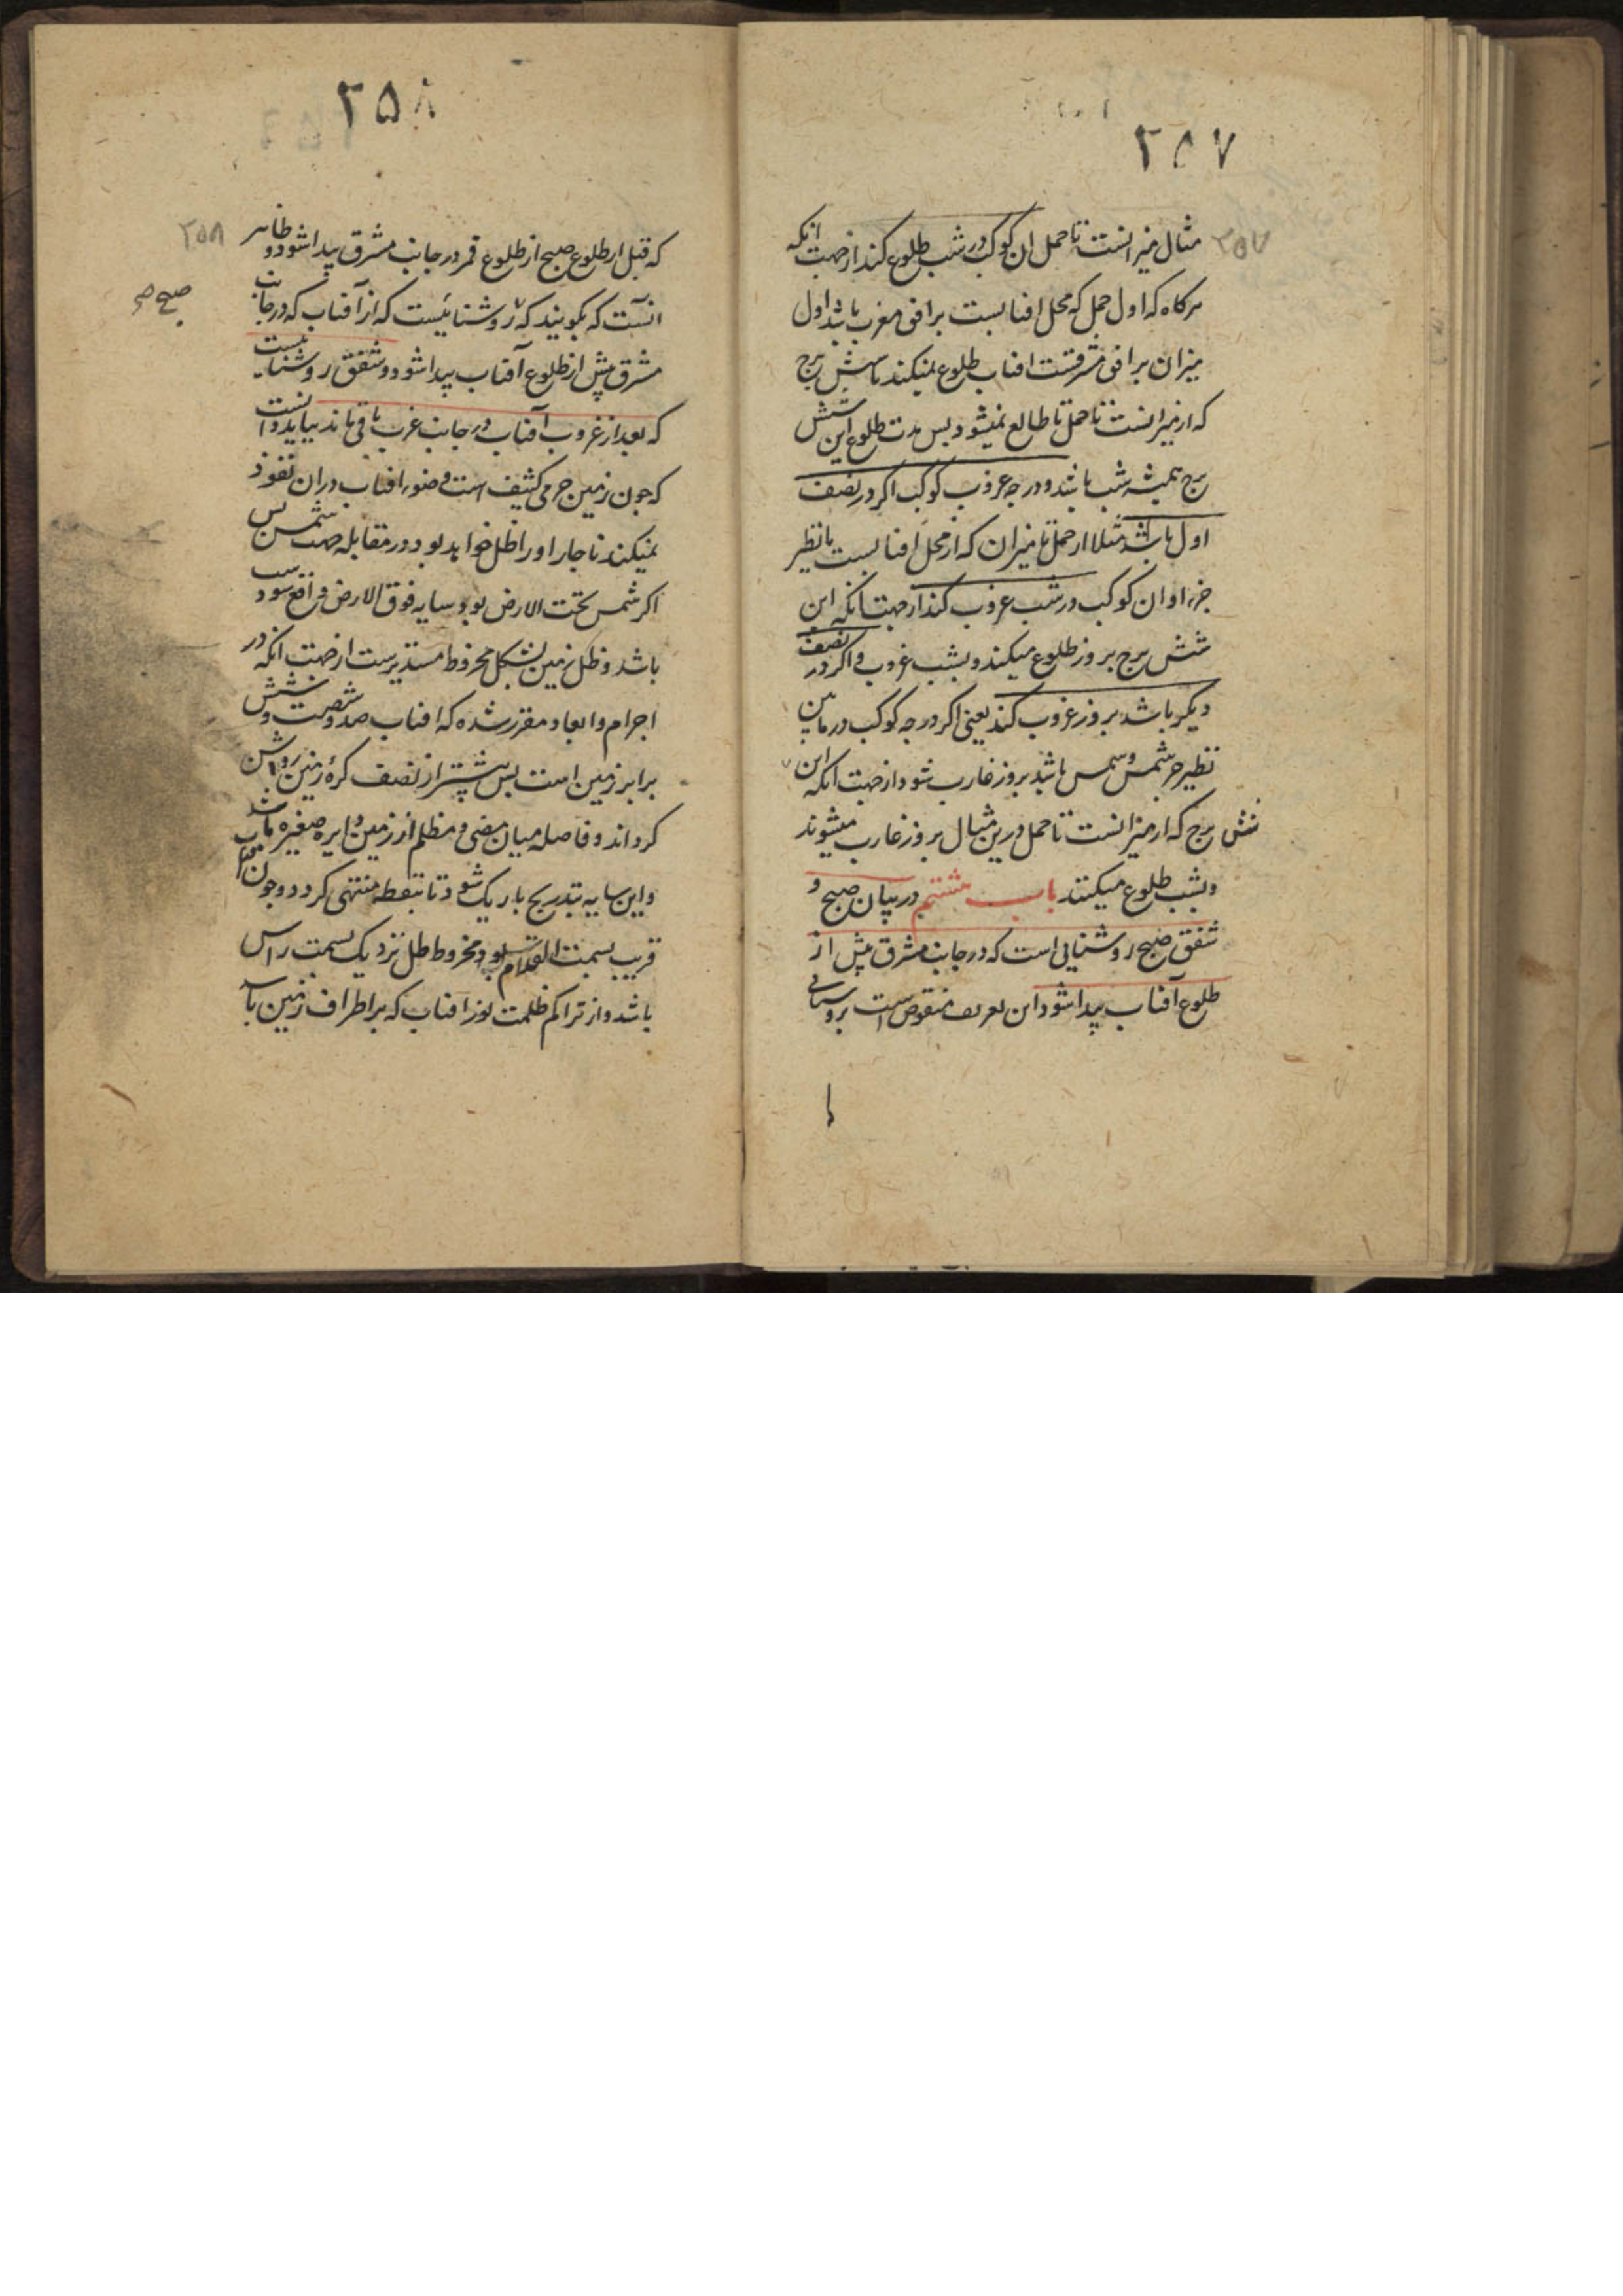 ۲۵۷
۲۵۷
مثال میزانست تا حمل ان کوکب در شب طلوع کند از جهت انکه
هرکاه که اول حمل که محل افتابست بر افق مغرب باشد اول
میزان بر افق مشرقست افتاب طلوع نمیکند تا شش برج
که از میزانست تا حمل تا طالع نمیشود بس مدت طلوع این شش
برج همیشه شب باشد و درجه غروب کوکب اکر در نصف
اول باشد مثلا از حمل تا میزان که از محل افتابست تا نظیر
جزء او ان کوکب در شب غروب کند از جهت انکه این
شش برج بروز طلوع میکند و بشب غروب و اکر در نصف
دیکر باشد بروز غروب کند یعنی اکر درجه کوکب در مابین
نظیر جزء شمس و شمس باشد بروز غارب شود از جهت انکه این
شش برج که از میزانست تا حمل درین مثال بروز غارب میشوند
و بشب طلوع میکنند باب هشتم در بیان صبح و
شفق صبح روشنایی است که در جانب مشرق پیش از
طلوع آفتاب پیدا شود و این تعریف منقوض است بروشنایی
۲۵۸
۲۵۸
که قبل از طلوع صبح از طلوع قمر در جانب مشرق پیدا شود و ظاهر
انست که بکویند که روشنائیست که از آفتاب که در جانب
صبح صح
مشرق پیش از طلوع آفتاب پیدا شود و شفق روشناییست
که بعد از غروب آفتاب در جانب غرب باقی ماند بباید دانست
که جون زمین جرمی کثیف است و ضوء افتاب در ان نفوذ
نمیکند ناجار او را ظل خواهد بود در مقابله جهت شمس بس
اکر شمس تحت الارض بود سایه فوق الارض واقع شود
باشد و ظل زمین بشکل مخروط مستدیرست از جهت انکه در
اجرام و ابعاد مقرر شده که افتاب صد و شصت و شش
برابر زمین است بس بیشتر از نصف کرهٔ زمین را روشن
کرداند و فاصله میان مضی و مظلم از زمین دایره صغیره باشد
و این سایه بتدریج باریک شود تا بنقطه منتهی کردد و جون
قریب بسمت القدم بود مخروط ظل نزدیک بسمت راس
باشد و از تراکم ظلمت نور افتاب که بر اطراف زمین